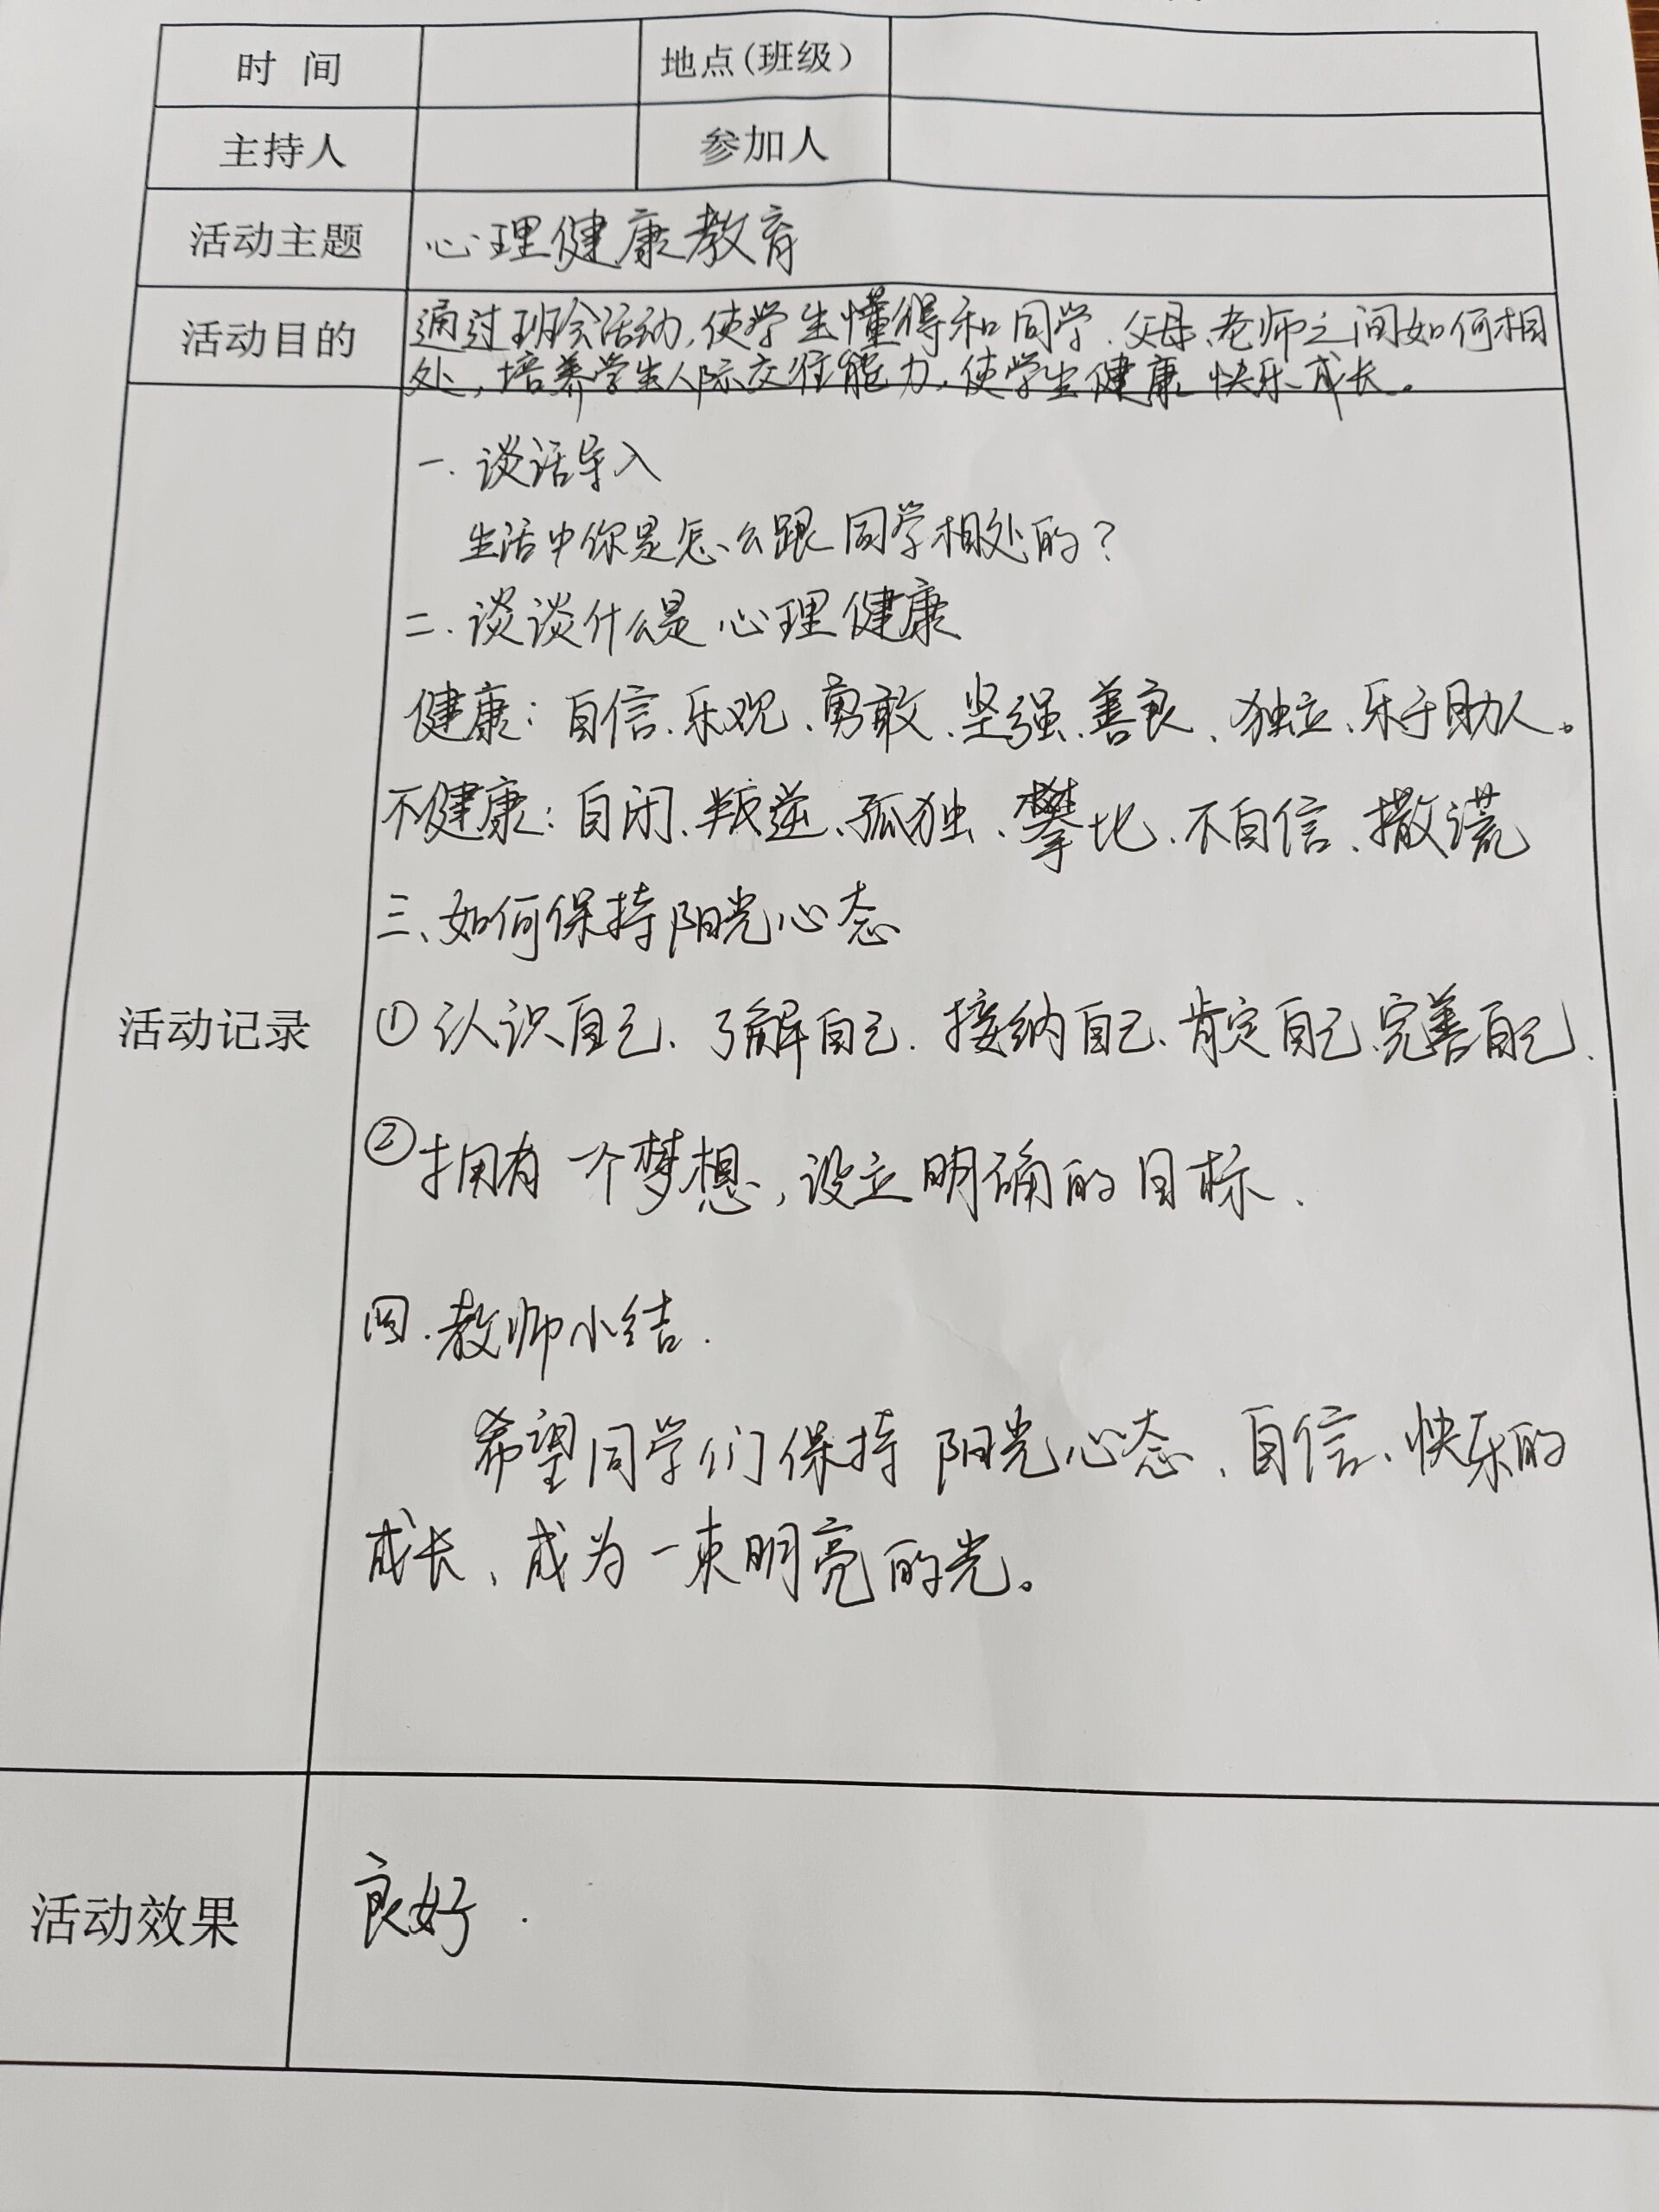 时 间 地点(班级)
主持人 参加人
活动主题 心理健康教育
活动目的 通过班会活动,使学生懂得和同学、父母、老师之间如何相
处,培养学生人际交往能力,使学生健康快乐成长。
一、谈话导入
生活中你是怎么跟同学相处的?
二、谈谈什么是心理健康
健康:自信、乐观、勇敢、坚强、善良、独立、乐于助人。
不健康:自闭、叛逆、孤独、攀比、不自信、撒谎
三、如何保持阳光心态
活动记录 ①认识自己、了解自己、接纳自己、肯定自己、完善自己、
②拥有一个梦想,设立明确的目标、
四、教师小结.
希望同学们保持阳光心态、自信、快乐的
成长、成为一束明亮的光。
活动效果 良好.